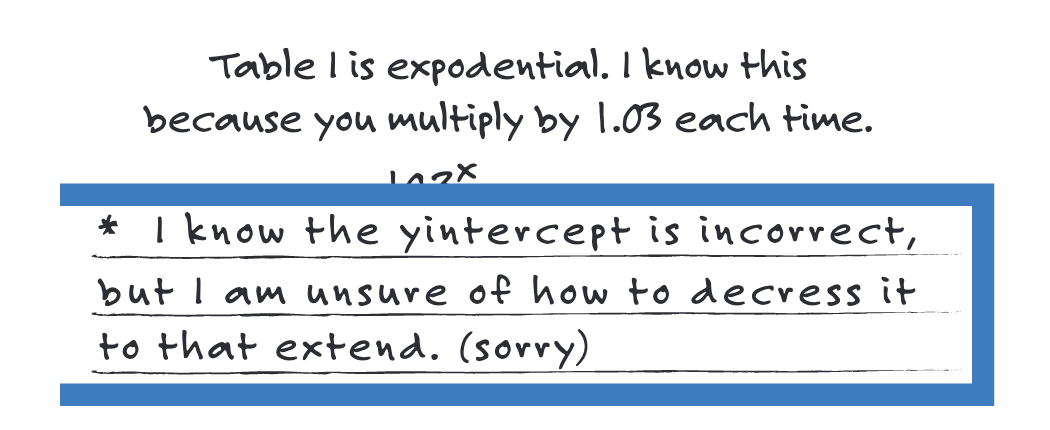 Table 1 is expodential. I know this
because you multiply by 1.03 each time.
* I know the yintercept is incorrect,
but I am unsure of how to decress it
to that extend. (sorry)